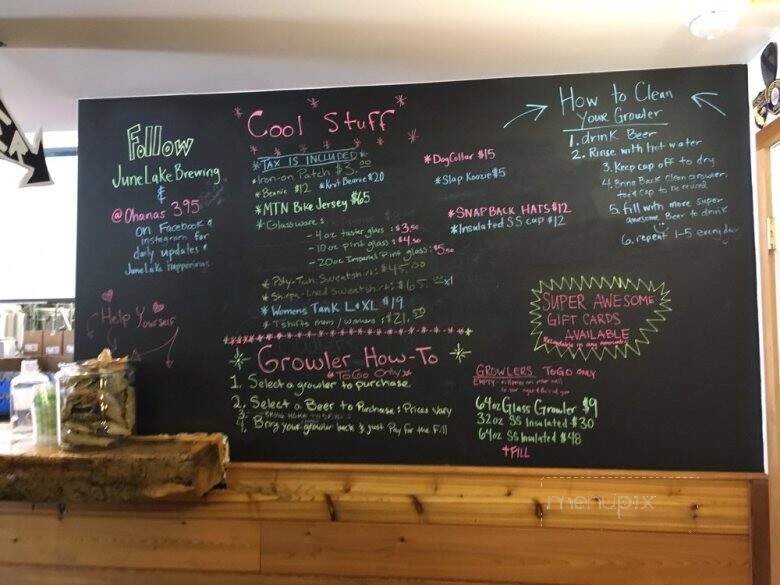 Follow
JuneLakeBrewing
&
@Ohanas 395
on Facebook &
instagram for
daily updates &
JuneLake happenings
Help Yourself
Cool Stuff
*TAX IS INCLUDED*
*Iron-on Patch $3.00
*Beanie $12 *Knit Beanie $20
*MTN Bike Jersey $65
*Glassware:
- 4oz taster glass: $3.50
- 10oz Pint glass: $4.50
- 20oz Imperial Pint glass: $5.50
Sweatshirt: $45.00
Lined Sweatshirt: $65.00 xl
*Womens Tank L&XL $19
*Tshirts mens/womans: $21.50
*DogCollar $15
*Slap Koozie $5
*SNAPBACK HATS $12
*Insulated SS cup $12
How to Clean
Your Growler
1. drink Beer
2. Rinse with hot water
3. Keep cap off to dry
4. Bring Back Clean growler
5. fill with more super
awesome Beer to drink
6. repeat 1-5 everyday
SUPER AWESOME
GIFT CARDS
AVAILABLE
Growler How-To
*ToGo Only*
1. Select a growler to purchase
2. Select a Beer to Purchase: Prices Vary
3. BRING HOME TO DRINK
4. Bring your growler back & just Pay for the Fill
GROWLERS TOGO ONLY
64oz Glass Growler $9
32oz SS Insulated $30
64oz SS Insulated $48
+FILL
menupix